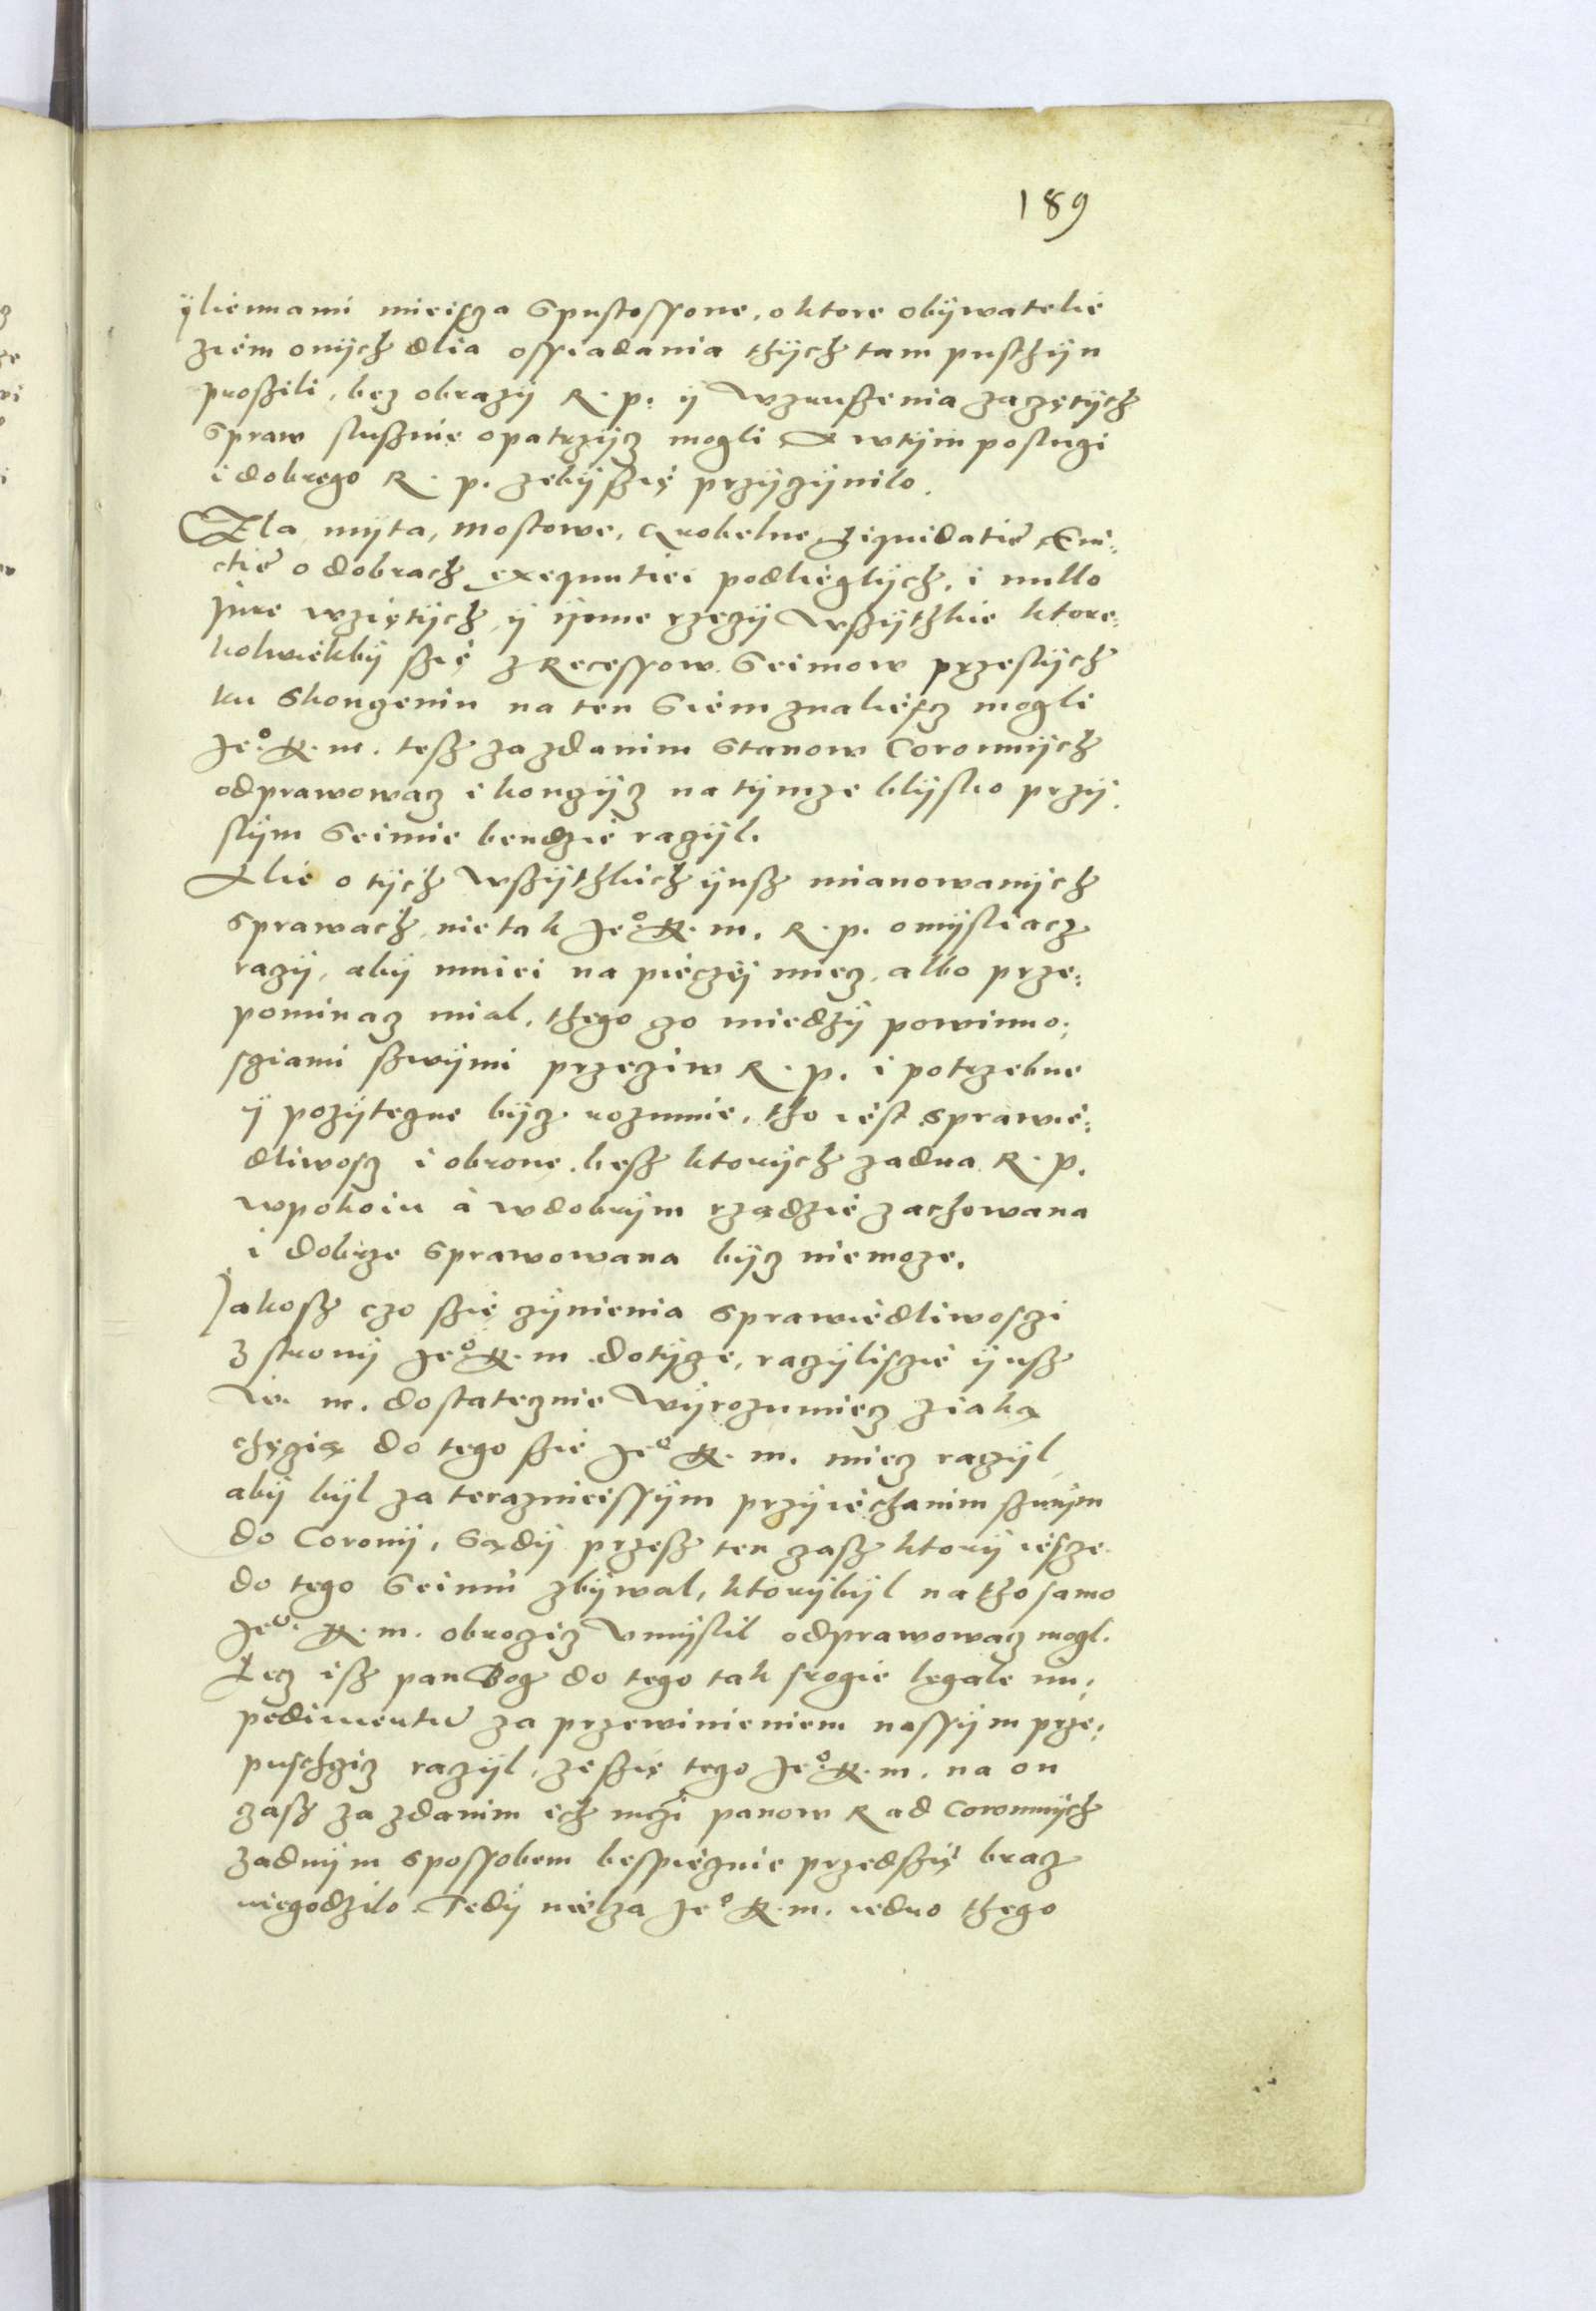 189
ÿliennami mieiscza Spustossone, o ktore obÿwatelie
ziem onÿch dlia ossiadania thÿch tam pusthÿn
proszili, bez obrazÿ R. p. ÿ wzruszenia zaczetÿch
Spraw slusznie opatrzÿcz mogli A wtÿm poslugi
i dobrego R. p. zebÿ szię przÿczÿnilo.
Cla mÿta, mostowe, Grobelne Liquidatie Evi:
ctie o dobrach exequutiei podlieglÿch, i nullo
jure wziętÿch, ÿ ÿnne rzeczÿ wszÿthkie ktore:
kolwiekbÿ szię z Recessow Seimow przeslÿch
ku Skonczeniu na ten Siem znaliescz mogli
Jeº. K. m. tesz za zdanim Stanow Coronnÿch
odprawowacz i konczÿcz na tÿmze blÿsko przÿ
slÿm Seimie bendzie raczÿl.
Alie o tÿch wszÿthkich ÿusz mianowanÿch
sprawach nie tak Jeº. K. m. R. p. omÿsliacz
raczÿ, abÿ mniei na pieczÿ miecz, albo prze:
pominacz mial, thego czo miedzÿ powinno:
scziami szwÿmi przecziw R. p. i potrzebne
ÿ pozÿteczne bÿcz rozumie, tho iest sprawie:
dliwoscz i obrone, besz ktorÿch zadna R. p.
wpokoiu a wdobrÿm rządzie zachowana
i dobrze sprawowana bÿcz niemoze.
Jakosz czo szię czÿnienia sprawiedliwosczi
z stronÿ Jeº. K. m. dotÿcze, raczÿlisczie ÿusz
W. m. dostatecznie wÿrozumiecz z iaką
chęczią do tego szie Jeº K. m. miecz raczÿl
abÿ bÿl za terazneissÿm przÿiechanim szwÿm
do Coronÿ, Sądÿ przesz ten czasz ktorÿ iescze
do tego Seimu zbÿwal, ktorÿbÿl na tho samo
Jeº. K. m. obroczicz umÿslil odprawowacz mogl.
Lecz isz pan Bog do tego tak srogie legale im:
pedimentu za przewinieniem nassÿm prze:
puschczicz raczÿl, ze szię tego Jeº. K. m. na on
czasz za zdanim ich mczi panow Rad Coronnÿch
zadnÿm spossobem bespiecznie przedszię bracz
niegodzilo. Tedÿ nielza Jeº K. m. iedno thego